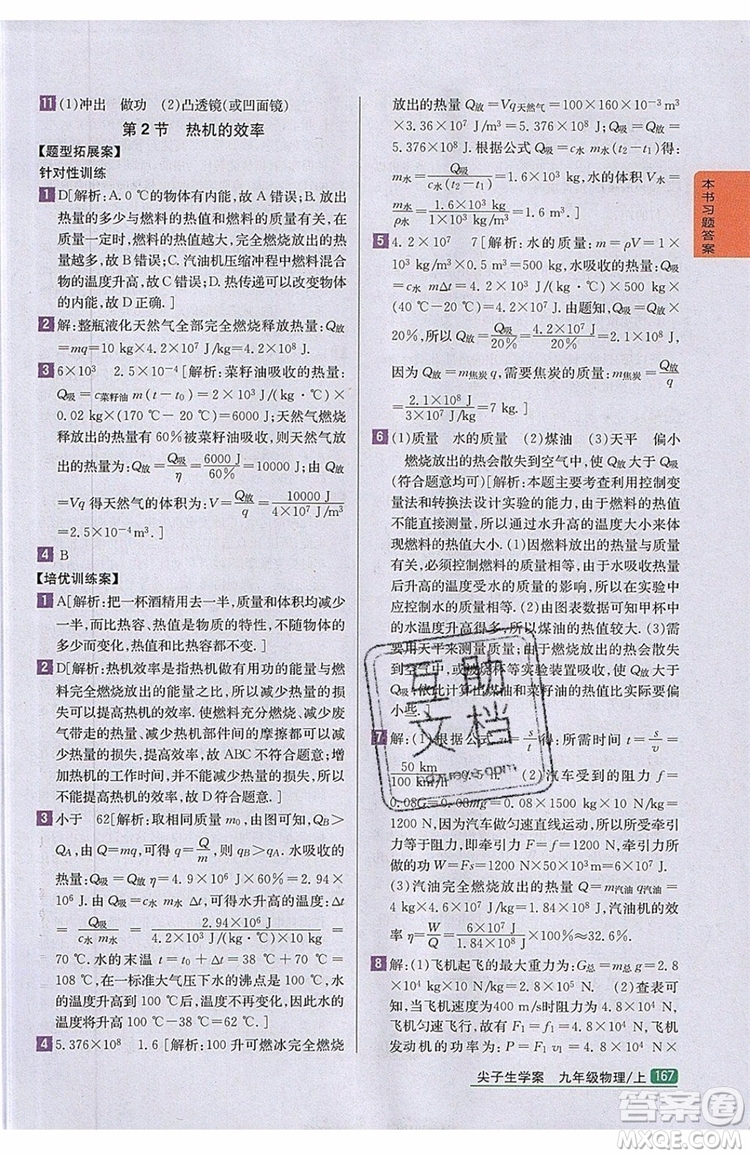 11 (1)冲出 做功 (2)凸透镜(或凹面镜)
第2节 热机的效率
【题型拓展案】
针对性训练
1 D[解析:A.0 ℃的物体有内能,故A错误;B.放出
热量的多少与燃料的热值和燃料的质量有关,燃料
的热值越大,完全燃烧放出的热量不一定越多,故
B错误;C.汽油机压缩冲程中燃料混合
物的温度升高,故C错误;D.热传递可以改变物体
的内能,故D正确。]
2 解:整瓶液化天然气全部完全燃烧释放热量:Q放
=mq=10 kg×4.2×10⁷ J/kg=4.2×10⁸ J。
3 6×10³ 2.5×10⁻⁴[解析:菜籽油吸收的热量:
Q吸=c菜籽油 m(t-t₀)=2×10³ J/(kg·℃)×
0.02 kg×(170 ℃-20 ℃)=6000 J;天然气燃烧
释放出的热量有60%被菜籽油吸收,则天然气燃烧
放出的热量为:Q放=Q吸/η=6000 J/60%=10000 J,由Q放
=Vq得天然气的体积为:V=Q放/q=10000 J/(4×10⁷ J/m³)
=2.5×10⁻⁴ m³。]
4 B
【培优训练案】
1 A[解析:把一杯酒精用去一半,质量和体积减少
一半,而比热容、热值是物质的特性,不随物质的多
少而变化,热值不变,故A符合题意。]
2 D[解析:热机效率是指做有用功的能量与燃
料完全燃烧放出的能量之比,所以减少热量的损
失可以提高热机的效率。使燃料充分燃烧、减少
废气带走的热量、减少热机部件间的摩擦都可以减
少热量的损失,提高效率,故ABC不符合题意;增加
热机的工作时间,并不能减少热量的损失,不能提高
效率,故D符合题意。]
3 小于 62[解析:取相同质量m₀,由图可知,QB>
QA,由q=Q/m可知,qA<qB。由图可知,水吸收
的热量:Q吸=Q放η=4.9×10⁶ J×60%=2.94×
10⁶ J,由Q吸=cmΔt可得,水升高的温度:Δt
=Q吸/(c水 m水)=2.94×10⁶ J/(4.2×10³ J/(kg·℃)×10 kg)=70 ℃,
水的末温t=t₀+Δt=38 ℃+70 ℃=108 ℃,
因在一个标准大气压下水的沸点是100 ℃,水的温
度升高到100 ℃后不再变化,故水温升高了
100 ℃-38 ℃=62 ℃。]
4 5.376×10⁸ 1.6[解析:100升可燃冰完全燃烧
放出的热量Q放=Vq天然气=100×160×10⁻³ m³
×3.36×10⁷ J/m³=5.376×10⁸ J,Q吸=Q放=
5.376×10⁸ J。根据公式Q吸=c水 m水(t₂-t₁)得:
m水=Q吸/(c水(t₂-t₁))=1.6×10³ kg,水的体积V水=
m水/ρ水=1.6×10³ kg/(1×10³ kg/m³)=1.6 m³。]
5 4.2×10⁷ 7[解析:水的质量:m=ρV=1.0×
10³ kg/m³×250×10⁻³ m³=250 kg;水吸收的热
量:Q吸=c水 mΔt=4.2×10³ J/(kg·℃)×250 kg×
(40 ℃)=4.2×10⁷ J。由题知,Q吸=Q放×
20%,所以Q放=Q吸/20%=4.2×10⁷ J/20%=2.1×10⁸ J,
因为Q放=m焦炭 q,需要焦炭的质量:m焦炭=Q放/q
=2.1×10⁸ J/(3×10⁷ J/kg)=7 kg。]
6 (1)质量 水的质量 (2)煤油 (3)天平 偏小
燃烧放出的热会散失到空气中,使Q放大于Q吸
(符合题意均可)[解析:本题主要考查利用控制变
量法和转换法设计实验的能力,由于燃料的热值
不能直接测量,所以通过水升高的温度大小来体现
燃料的热值大小。(1)因燃料燃烧放出热量,水吸收热
量,所以实验中应控制燃料的质量和水的质量相同,避免水和燃
料的质量的影响。(2)由图表数据可知甲杯中的
水升高温度多,所以煤油的热值大。(3)因要知道质
量,故用天平来测量;因实验装置吸热以及Q放大于
Q吸,所以计算出煤油和菜籽油的热值比实际要
偏小些。]
7 解:(1)根据公式v=s/t得:所需时间t=s/v=
50 km/(100 km/h)=0.5 h。(2)汽车受到的阻力f=
0.08G=0.08mg=1200 N。
因为汽车做匀速直线运动,所以牵引
力等于阻力,即牵引力F=f=1200 N,牵引力所
做的功W=Fs=1200 N×5×10⁴ m=6×10⁷ J。
(3)汽油完全燃烧放出的热量:Q放=m汽油 q汽油
=4 kg×4.6×10⁷ J/kg=1.84×10⁸ J,汽油机的效
率η=W/Q放=6×10⁷ J/(1.84×10⁸ J)≈32.6%。
8 解:(1)飞机起飞的最大重力为:G总=m总 g=2.8
×10⁴ kg×10 N/kg=2.8×10⁵ N。(2)查表可
知,当飞机速度为400 m/s时,阻力f₁=4.8×10⁴ N,
飞机匀速飞行,故有F₁=f₁=4.8×10⁴ N,飞机
发动机的功率为:P₁=F₁v₁=4.8×10⁴ N×
本书习题答案
尖子生学案 九年级物理/上 167
互助
文档
答案圈
MXQE.COM